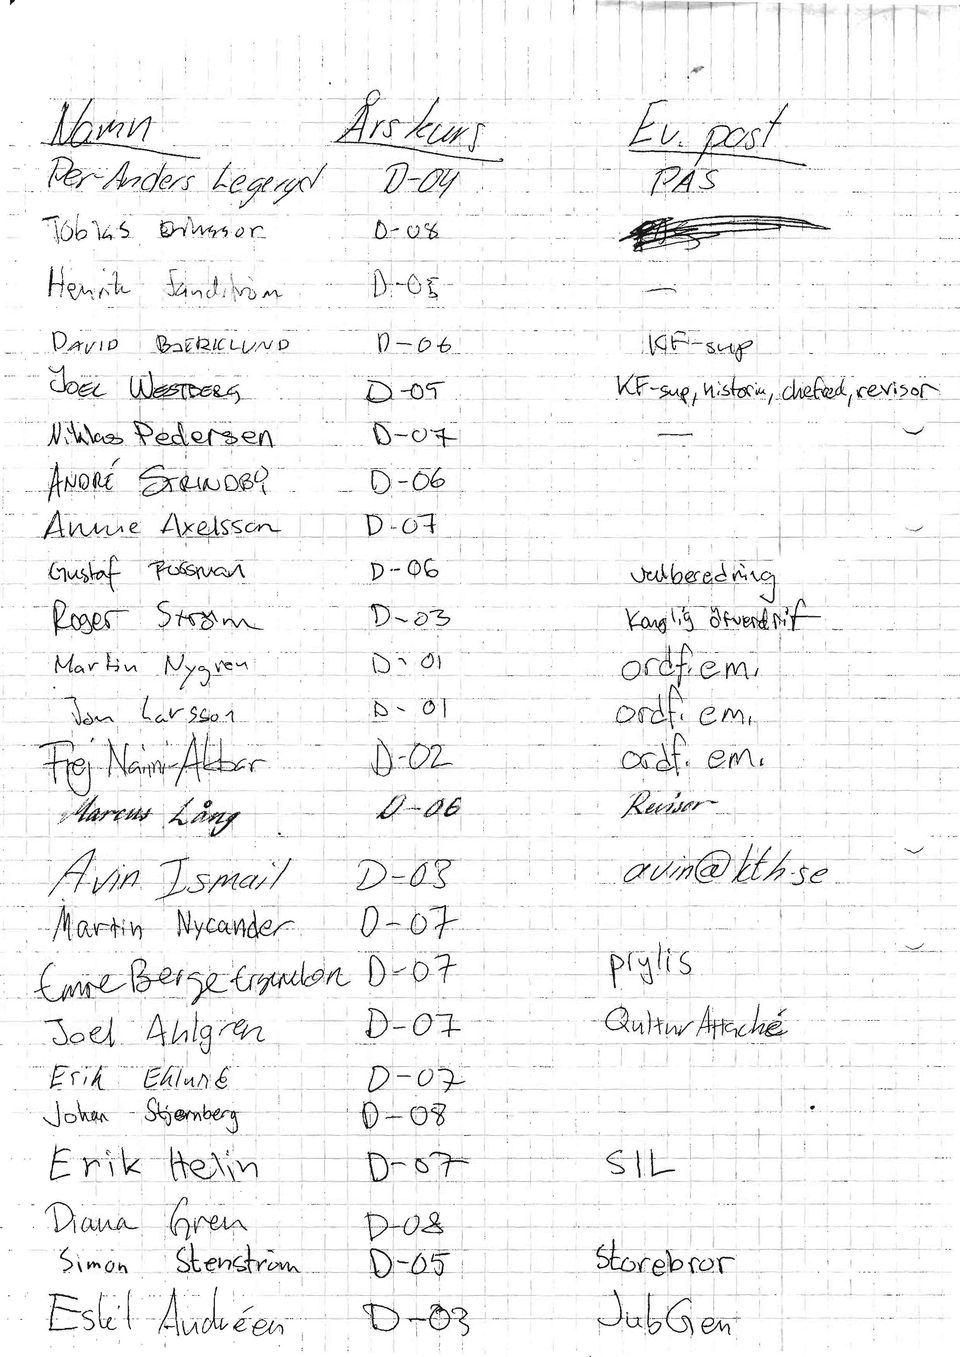 Namn Årskurs Ev. post
Per-Anders Legeryd D-04 PAS
Tobias D-08
Henrik Sandström D-05 —
DAVID BJERKLUND D-06 KF-sup
JOEL WESTBERG D-05 KF-sup, historia, chefred, revisor
Niklas Pedersen D-07 —
ANDRÉ STRINDBY D-06
Annie Axelsson D-07
Gustaf D-06 valberedning
Roger Strøm D-03 Konglig öfverdrif
Martin Nygren D-01 ordf. em.
Jon Larsson D-01 ordf. em.
Frej D-02 ordf. em.
Marcus Lång D-06 Revisor
Avin Ismail D-03 avin@kth.se
Martin Nycander D-07
Emre Berge D-07 prylis
Joel Ahlgren D-07 Qultur Attaché
Erik Eklund D-07
Johan Stjernberg D-08
Erik Helin D-07 SIL
Diana Gren D-08
Simon Stenström D-05 Storebror
Eskil Andréen D-03 JubGen